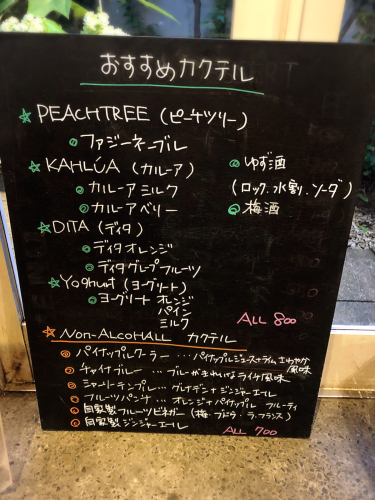 おすすめカクテル
☆ PEACHTREE (ピーチツリー)
◎ ファジーネーブル
☆ KAHLÚA (カルーア)
◎ カルーア ミルク
◎ カルーア ベリー
◎ ゆず酒
(ロック、水割、ソーダ)
◎ 梅酒
☆ DITA (ディタ)
◎ ディタ オレンジ
◎ ディタグレープフルーツ
☆ Yoghurt (ヨーグリート)
◎ ヨーグリート オレンジ
パイン
ミルク
ALL 800
☆ Non-AlcoHALL カクテル
◎ パイナップルクーラー … パイナップルジュース+ライム さわやか風味
◎ チャイナブルー … ブルーがきれいなライチ風味
◎ シャーリーテンプル … グレナデン+ジンジャーエール
◎ フルーツパンチ … オレンジ+パイナップル フルーティ
◎ 自家製フルーツビネガー (梅・ブドウ・ラ・フランス)
◎ 自家製ジンジャーエール
ALL 700